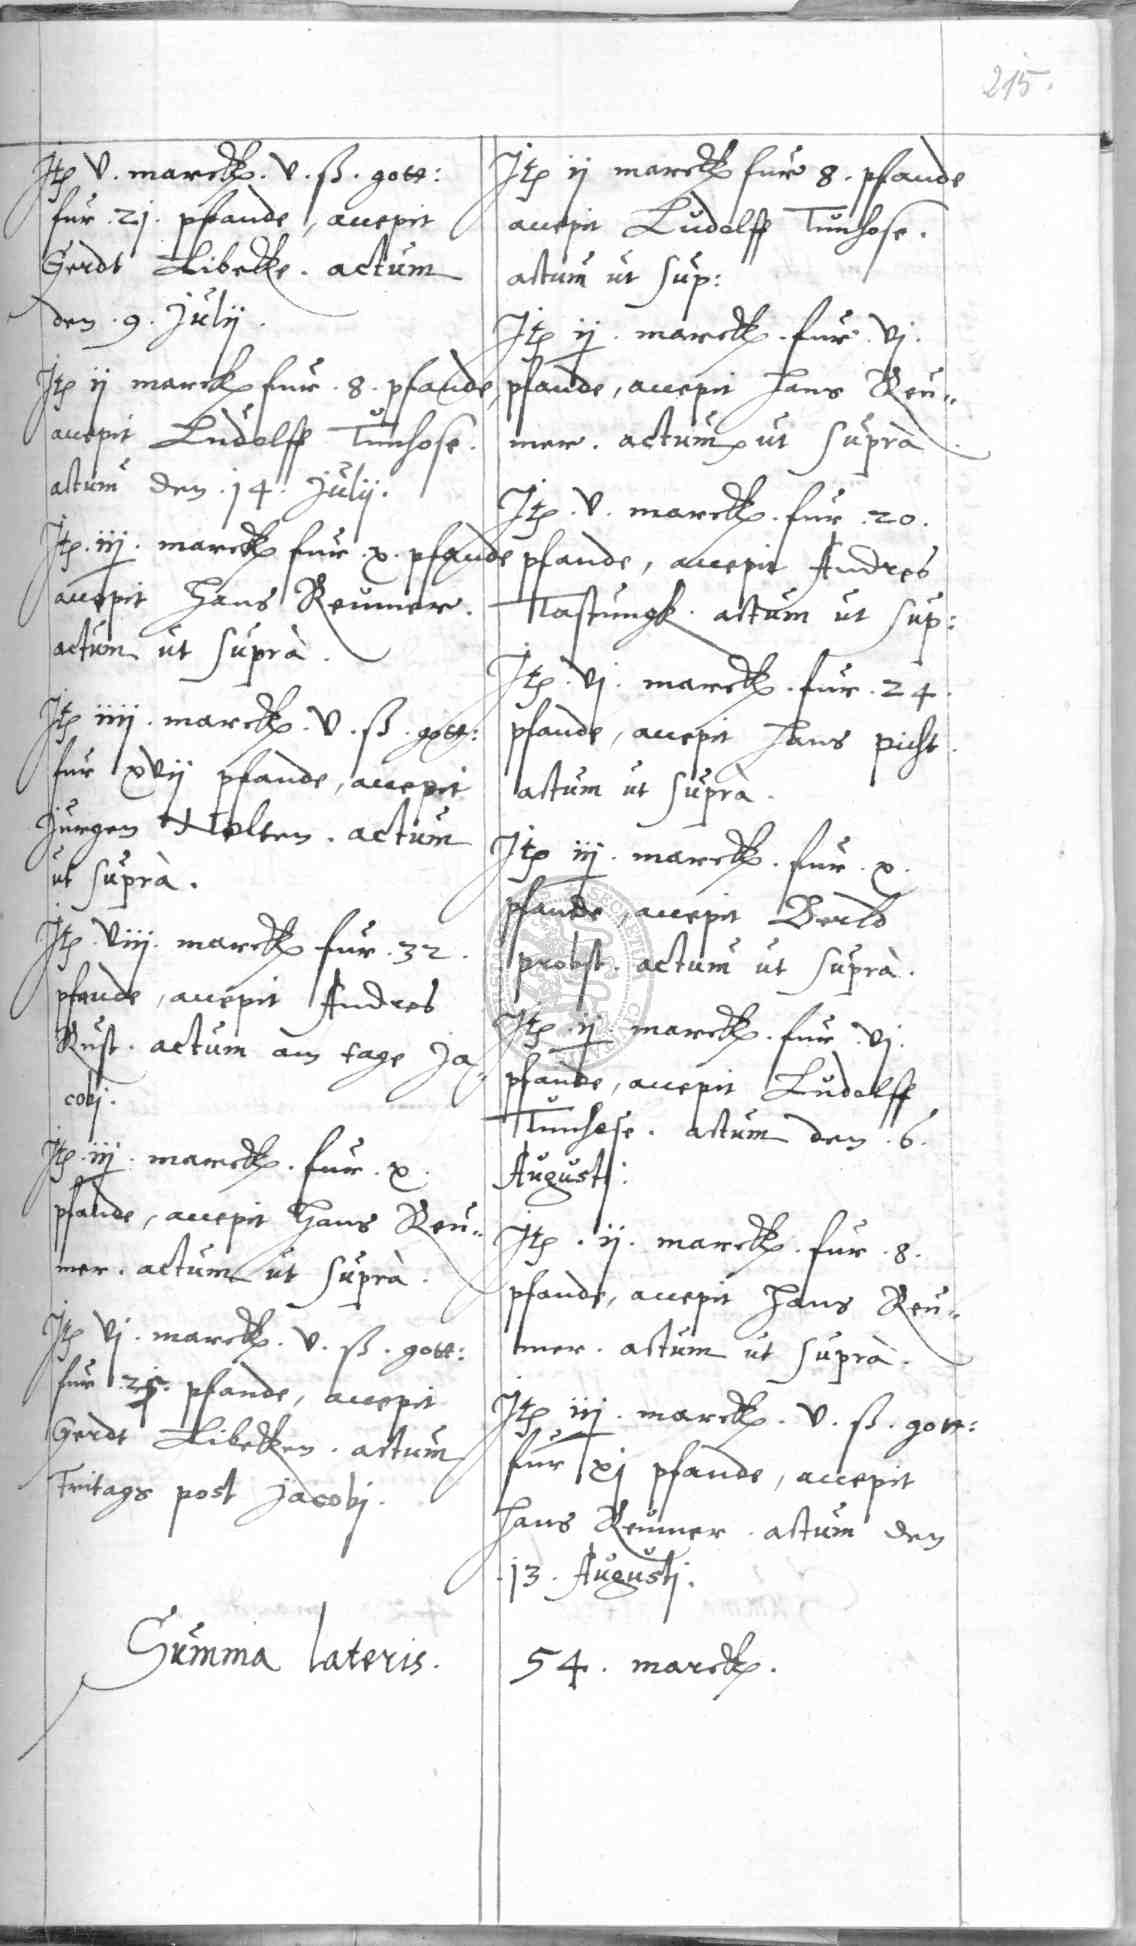 215.
Jtꝫ v. marckꝫ. v. ß. gott:
fur .2j. pfande, accepit
Gerdt Libecke. actum
den .9. Julij.
Jtꝫ ij marckꝫ fur .8. pfande,
accepit Ludolff Tunhose.
actum den .14. Julij.
Jtꝫ. iij. marckꝫ fur .x. pfande
accepit Hans Reumer.
actum ut suprà.
Jtꝫ iiij. marckꝫ. v. ß. gott:
fur xvij pfande, accepit
Jurgen Nolten. actum
ut suprà.
Jtꝫ. viij. marckꝫ fur .32.
pfande, accepit Andres
Rust. actum am tage Ja„
cobj.
Jtꝫ. iij. marckꝫ. fur .x.
pfande, accepit Hans Reu„
mer. actum ut suprà.
Jtꝫ vj. marckꝫ. v. ß. gott:
fur .25. pfande, accepit
Gerdt Libecken. actum
Fritags post Jacobj.
Jtꝫ ij marckꝫ fur 8. pfande
accepit Ludolff Tunhose.
actum ut sup:
Jtꝫ ij. marckꝫ. fur. vj.
pfande, accepit Hans Reu„
mer. actum ut suprà
Jtꝫ. v. marckꝫ. fur .20.
pfande, accepit Andres
Tastungk. actum ut sup:
Jtꝫ. vj. marckꝫ. fur .24.
pfande, accepit Hans picht.
actum ut suprà.
Jtꝫ iij. marckꝫ. fur. x.
pfande, accepit Berld
probst. actum ut suprà.
Jtꝫ. ij. marckꝫ. fur vj.
pfande, accepit Ludolff
Tunhose. actum den .6.
Augustj:
Jtꝫ. ij. marckꝫ. fur .8.
pfande, accepit Hans Reu„
mer. actum ut suprà.
Jtꝫ iij. marckꝫ. v. ß. gott:
fur xj pfande, accepit
Hans Reumer. actum den
.13. Augustj.
Summa lateris. 54. marckꝫ.